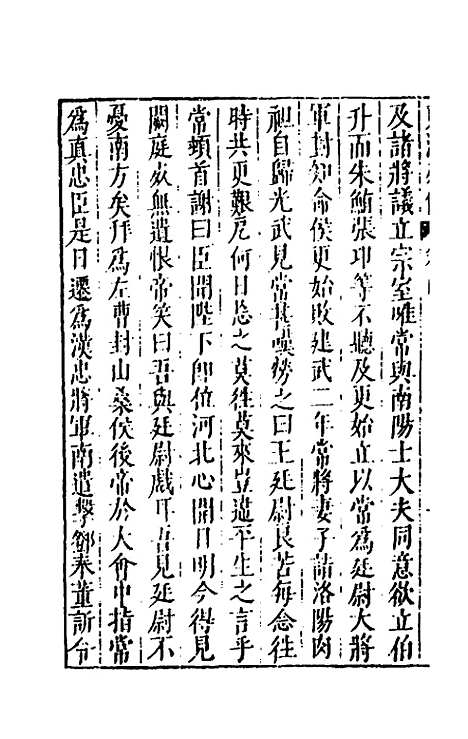 及諸將議立宗室唯常與南陽士大夫同意欲立伯
升而朱鮪張卬等不聽及更始立以常為廷尉大將
軍封知命侯更始敗建武二年常將妻子詣洛陽肉
袒自歸光武見常甚歡勞之曰王廷尉良苦每念往
時共更艱厄何日忘之莫往莫來豈違平生之言乎
常頓首謝曰臣聞陛下卽位河北心開目明今得見
闕庭死無遺恨帝笑曰吾與廷尉戲耳吾見廷尉不
憂南方矣拜為左曹封山桑侯後帝於大會中指常
為真忠臣是日遷為漢忠將軍南遣擊鄧奉董訢令